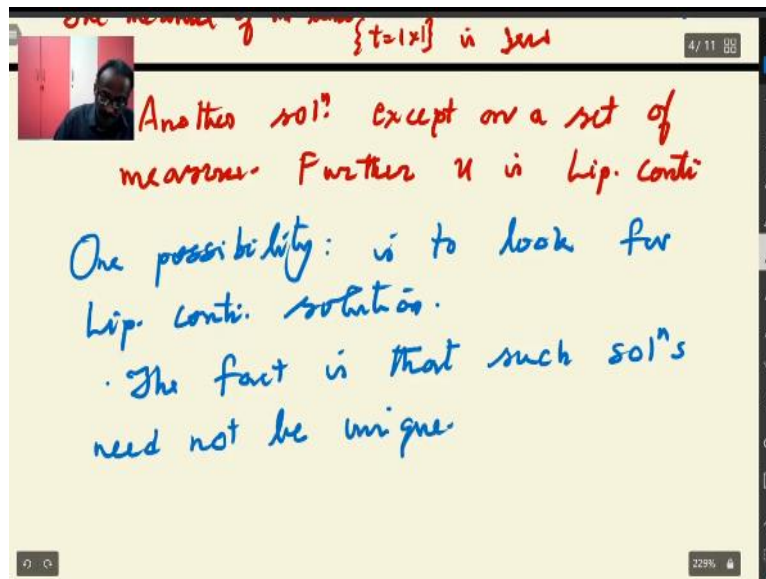 of {t=|x|} is
4/11
Another solⁿ. except on a set of
measure. Further u is Lip. conti
One possibility: is to look for
Lip. conti. solution.
· The fact is that such solⁿs
need not be unique.
229%